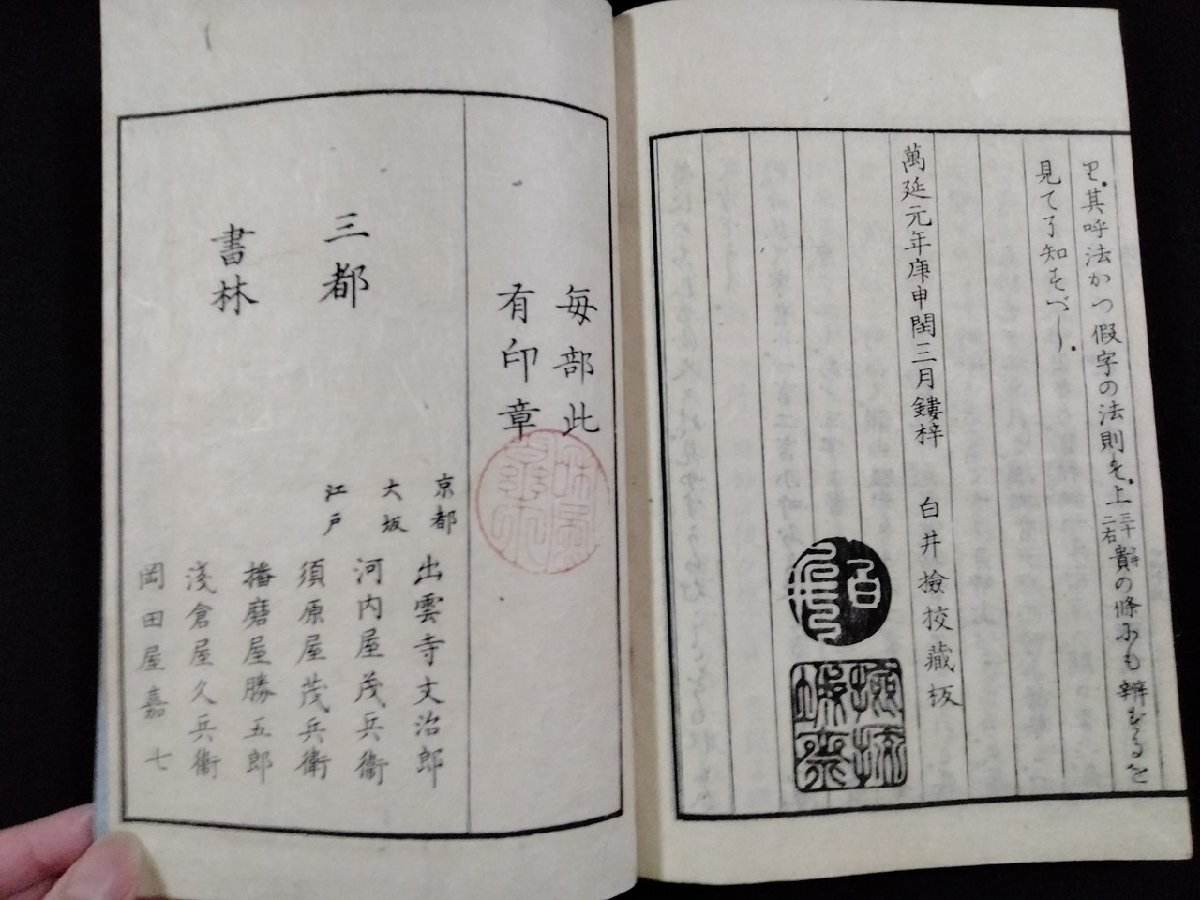 其呼法かつ假字の法則を.上三十二右貴の條にも辨ずるを
見て了知すべし.
萬延元年庚申閏三月鏤梓 白井撿挍藏板
毎部此
有印章
三都
書林
京都 出雲寺文治郎
大坂 河内屋茂兵衞
江戸 須原屋茂兵衛
播磨屋勝五郎
淺倉屋久兵衞
岡田屋嘉七